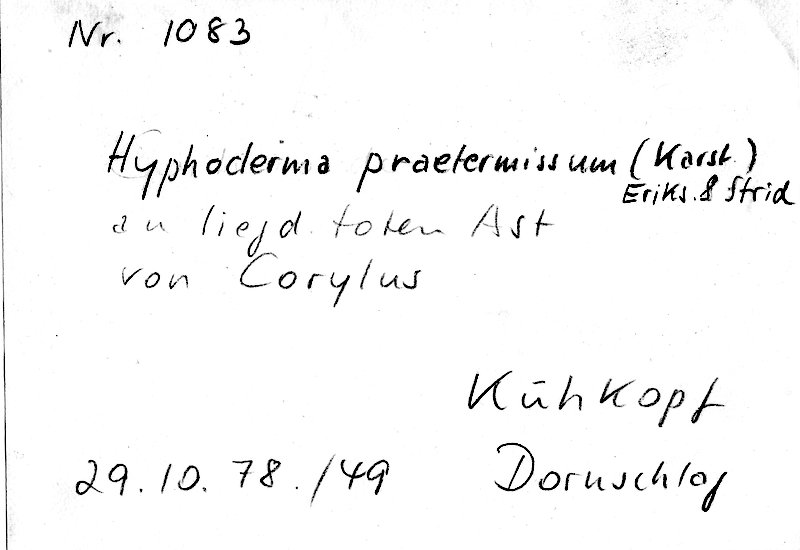 Nr. 1083
Hyphoderma praetermissum (Karst.)
Eriks. & Strid
an liegd. toten Ast
von Corylus
Kühkopf
29.10.78./49 Dornschlag